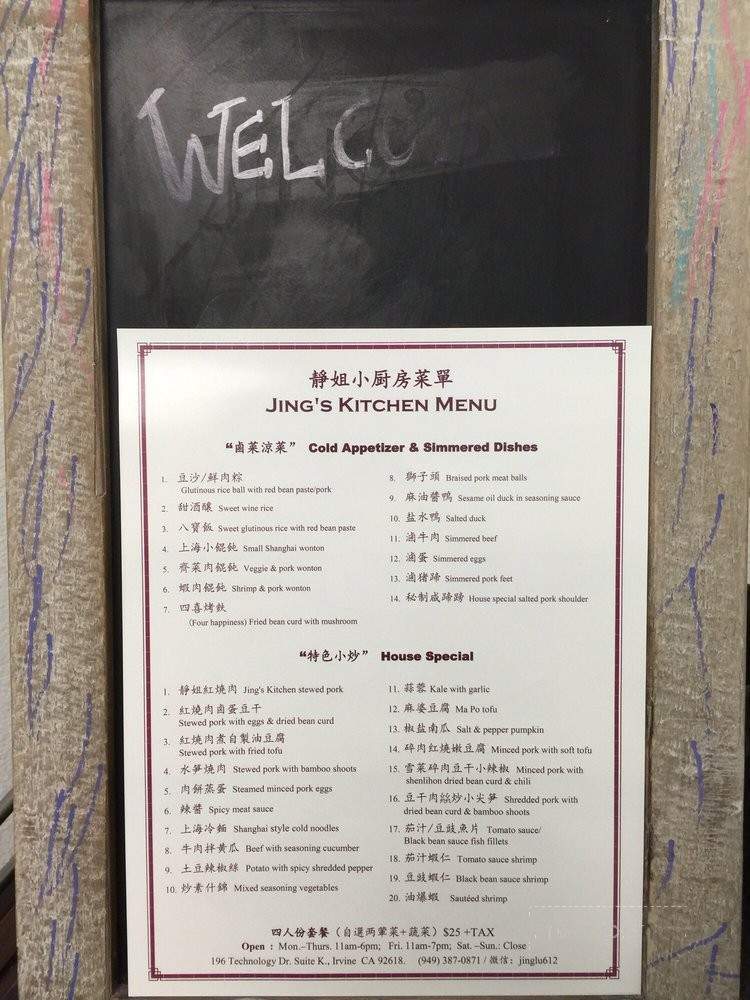 WELCO
靜姐小厨房菜單
JING'S KITCHEN MENU
“鹵菜涼菜” Cold Appetizer & Simmered Dishes
1. 豆沙/鮮肉粽
Glutinous rice ball with red bean paste/pork
2. 甜酒釀 Sweet wine rice
3. 八寶飯 Sweet glutinous rice with red bean paste
4. 上海小餛飩 Small Shanghai wonton
5. 薺菜肉餛飩 Veggie & pork wonton
6. 蝦肉餛飩 Shrimp & pork wonton
7. 四喜烤麩
(Four happiness) Fried bean curd with mushroom
8. 獅子頭 Braised pork meat balls
9. 麻油醬鴨 Sesame oil duck in seasoning sauce
10. 盐水鴨 Salted duck
11. 滷牛肉 Simmered beef
12. 滷蛋 Simmered eggs
13. 滷猪蹄 Simmered pork feet
14. 秘制咸蹄膀 House special salted pork shoulder
“特色小炒” House Special
1. 靜姐紅燒肉 Jing's Kitchen stewed pork
2. 紅燒肉鹵蛋豆干
Stewed pork with eggs & dried bean curd
3. 紅燒肉煮自製油豆腐
Stewed pork with fried tofu
4. 水笋燒肉 Stewed pork with bamboo shoots
5. 肉餅蒸蛋 Steamed minced pork eggs
6. 辣醬 Spicy meat sauce
7. 上海冷麵 Shanghai style cold noodles
8. 牛肉拌黄瓜 Beef with seasoning cucumber
9. 土豆辣椒絲 Potato with spicy shredded pepper
10. 炒素什錦 Mixed seasoning vegetables
11. 蒜蓉 Kale with garlic
12. 麻婆豆腐 Ma Po tofu
13. 椒盐南瓜 Salt & pepper pumpkin
14. 碎肉红燒嫩豆腐 Minced pork with soft tofu
15. 雪菜碎肉豆干小辣椒 Minced pork with
shenlihon dried bean curd & chili
16. 豆干肉絲炒小尖笋 Shredded pork with
dried bean curd & bamboo shoots
17. 茄汁/豆豉魚片 Tomato sauce/
Black bean sauce fish fillets
18. 茄汁蝦仁 Tomato sauce shrimp
19. 豆豉蝦仁 Black bean sauce shrimp
20. 油爆蝦 Sautéed shrimp
四人份套餐（自選两葷菜+蔬菜）$25 +TAX
Open : Mon.–Thurs. 11am-6pm; Fri. 11am-7pm; Sat. –Sun.: Close
196 Technology Dr. Suite K., Irvine CA 92618. (949) 387-0871 / 微信: jinglu612